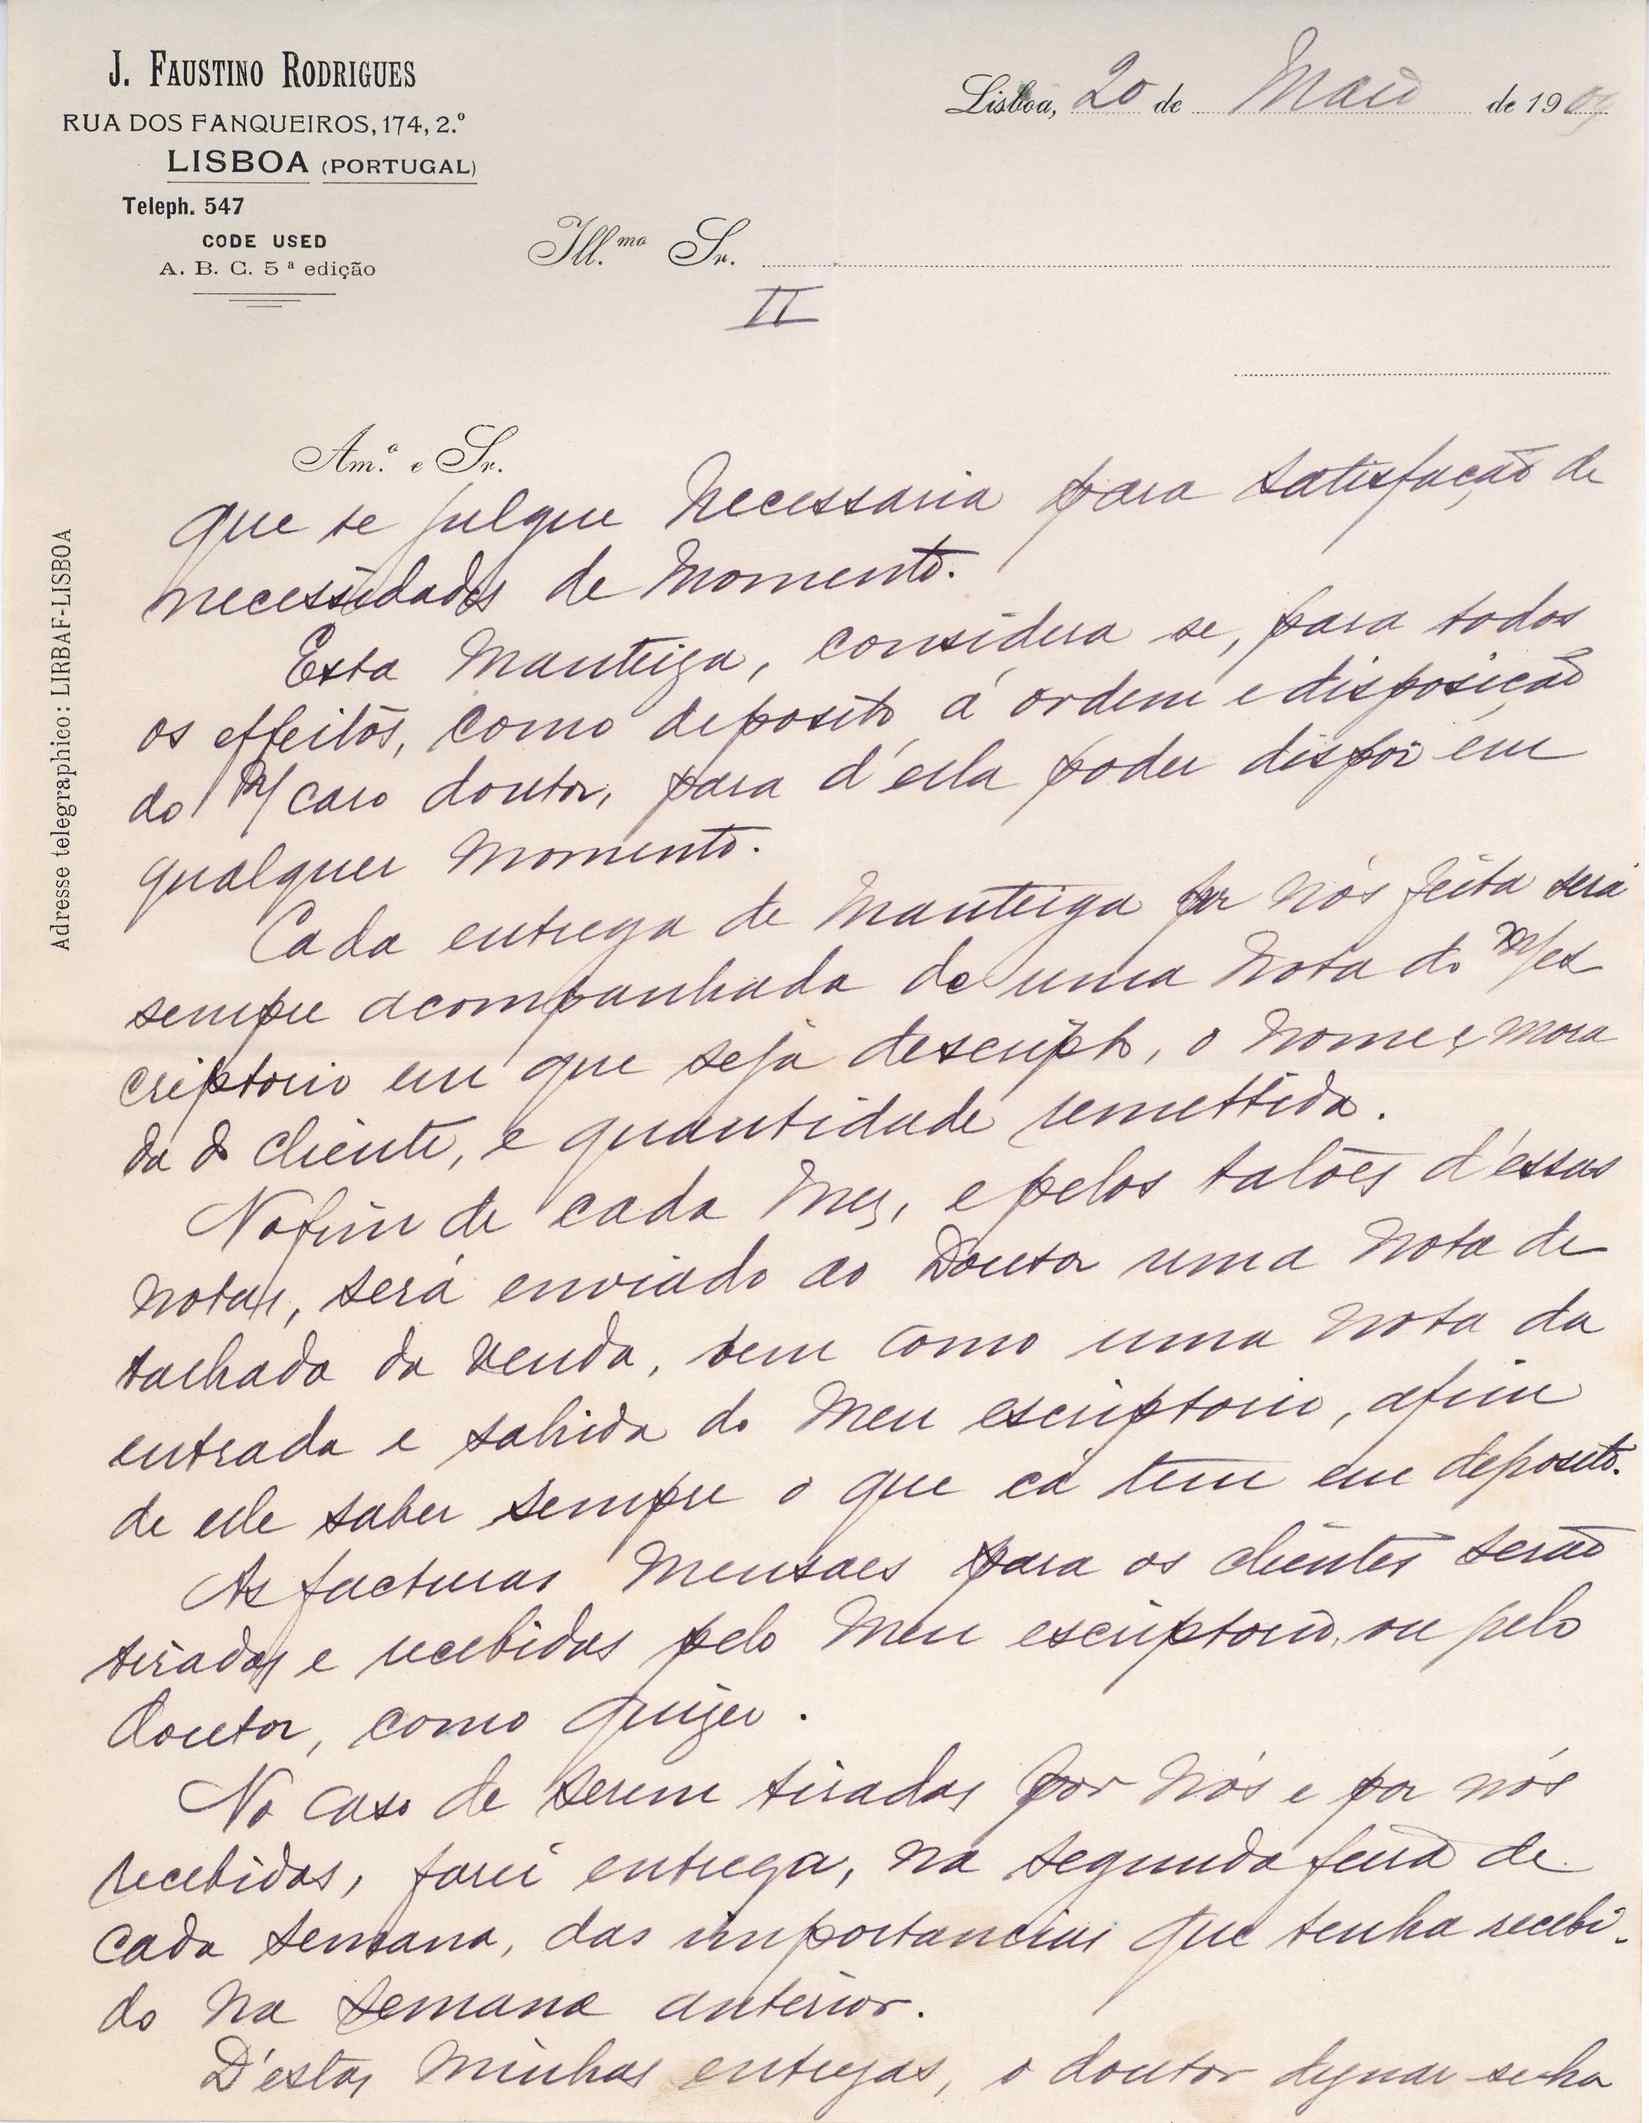 J. FAUSTINO RODRIGUES
RUA DOS FANQUEIROS, 174, 2.º
LISBOA (PORTUGAL)
Teleph. 547
CODE USED
A. B. C. 5ª edição
Adresse telegraphico: LIRBAF-LISBOA
Lisboa, 20 de Maio de 1909
Ill.mo Sr.
II
Am.º e Sr.
que se julgue necessaria para satisfação de
necessidades de momento.
Esta manteiga, considera se, para todos
os effeitos, como deposito á ordem e disposição
do M/ caro doutor, para d'ella poder dispôr em
qualquer momento.
Cada entrega de manteiga por nós feita será
sempre acompanhada de uma nota do m/ es
criptorio em que seja descripto, o nome e mora
da do cliente, e quantidade remettida.
No fim de cada mez, e pelos talões d'essas
notas, será enviado ao Doutor uma nota de
talhada da venda, bem como uma nota da
entrada e sahida do meu escriptorio, afim
de elle saber sempre o que cá tem em deposito.
As facturas mensaes para os clientes serão
tiradas e recebidas pelo meu escriptorio, ou pelo
doutor, como quizer.
No caso de serem tiradas por nós e por nós
recebidas, farei entrega, na segunda feira de
cada semana, das importancias que tenha recebi-
do na semana anterior.
D'estas minhas entregas, o doutor dignar se ha